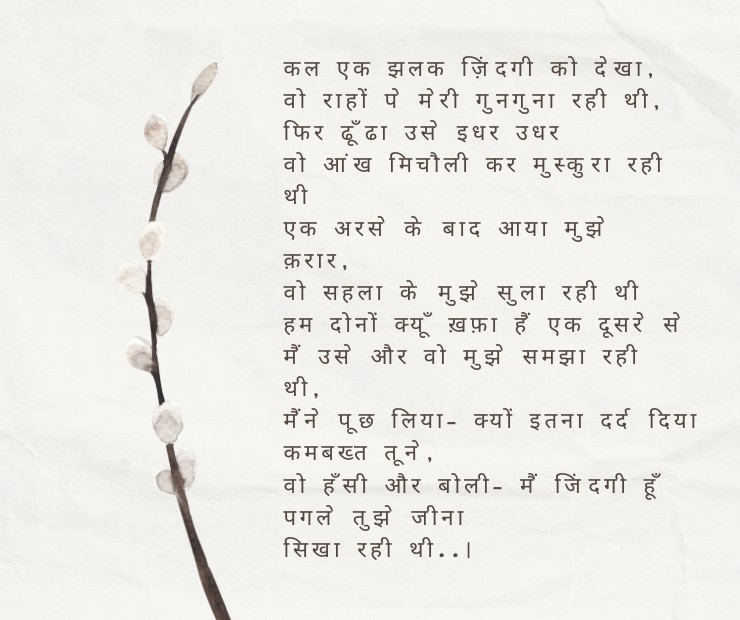 कल एक झलक ज़िंदगी को देखा,
वो राहों पे मेरी गुनगुना रही थी,
फिर ढूँढा उसे इधर उधर
वो आंख मिचौली कर मुस्कुरा रही
थी
एक अरसे के बाद आया मुझे
क़रार,
वो सहला के मुझे सुला रही थी
हम दोनों क्यूँ ख़फ़ा हैं एक दूसरे से
मैं उसे और वो मुझे समझा रही
थी,
मैंने पूछ लिया- क्यों इतना दर्द दिया
कमबख्त तूने,
वो हँसी और बोली- मैं जिंदगी हूँ
पगले तुझे जीना
सिखा रही थी..|